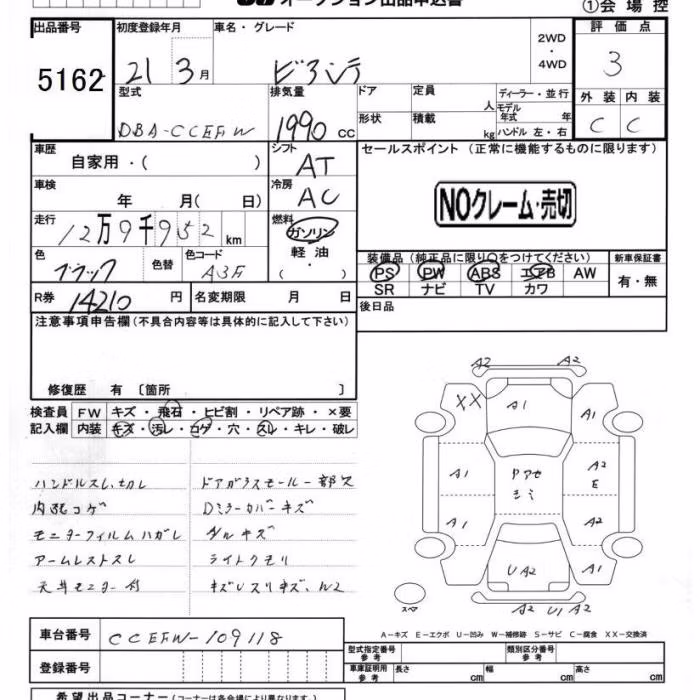 オークション出品申込書
①会場控
出品番号 初度登録年月 車名・グレード 2WD・4WD 評価点
5162 21 3月 ビアンテ 3
型式 排気量 ドア 定員 人 ディーラー・並行 外装 内装
DBA-CCEFW 1990 cc 形状 積載 kg モデル年式 年 ハンドル 左・右 C C
車歴 自家用・( ) シフト AT セールスポイント (正常に機能するものに限ります)
車検 年 月( 日) 冷房 AC
NOクレーム・売切
走行 12万9千952 km 燃料 ガソリン 軽油 ・( )
色 ブラック 色替 色コード A3F 装備品 (純正品に限り○をつけてください) 新車保証書
PS PW ABS エアB AW 有・無
SR ナビ TV カワ
R券 14210 円 名変期限 月 日 後日品
注意事項申告欄 (不具合内容等は具体的に記入して下さい)
修復歴 有 〔箇所 〕
検査員 FW キズ・飛石・ヒビ割・リペア跡・×要
記入欄 内装 キズ・汚レ・コゲ・穴・スレ・キレ・破レ
ハンドルスレ、切レ
ドアガラスモール一部欠
内張コゲ
Dミラーカバーキズ
モニターフィルムハガレ
アームレストスレ
ライトクモリ
天井モニター付
A2 A2
XX A1 A1
A1 アアセ A2
ミミ E
A1 A2
UA2 A1
スペア A2 U1 A2
A-キズ E-エクボ U-凹み W-補修跡 S-サビ C-腐食 XX-交換済
車台番号 CCEFW-109118 型式指定番号 参考 類別区分番号 参考
登録番号 車庫証明用 参考 長さ cm 幅 cm 高さ cm
希望出品コーナー (コーナーは各会場により異なります。)